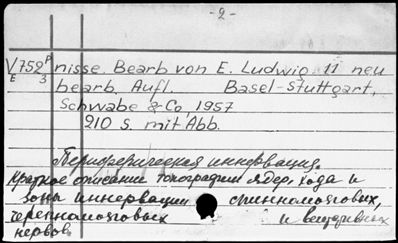 -2-
V752 P nisse Bearb von E. Ludwig 11 neu
E 3 bearb. Aufl. Basel-Stuttgart,
Schwabe & Co, 1957
210 S. mit Abb.
Периферическая иннервация.
Краткое описание топографии ядер, хода и
зоны иннервации спинномозговых,
черепномозговых и вегетативных
нервов